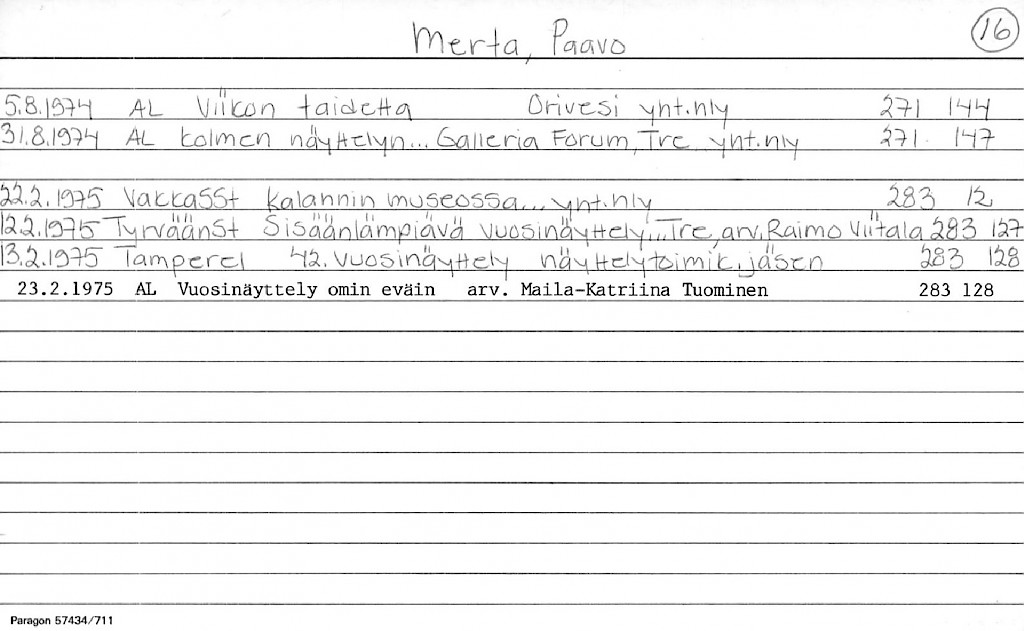 Merta, Paavo
16
5.8.1974 AL Viikon taidetta Orivesi yht.nly 271 144
31.8.1974 AL Kolmen näyttelyn... Galleria Forum, Tre yht.nly 271 147
22.2.1975 VakkaSSt Kalannin museossa... yht.nly 283 12
12.2.1975 TyrväänSt Sisäänlämpiävä vuosinäyttely... Tre, arv. Raimo Viitala 283 127
13.2.1975 Tamperel 42. vuosinäyttely näyttelytoimik. jäsen 283 128
23.2.1975 AL Vuosinäyttely omin eväin arv. Maila-Katriina Tuominen 283 128
Paragon 57434/711